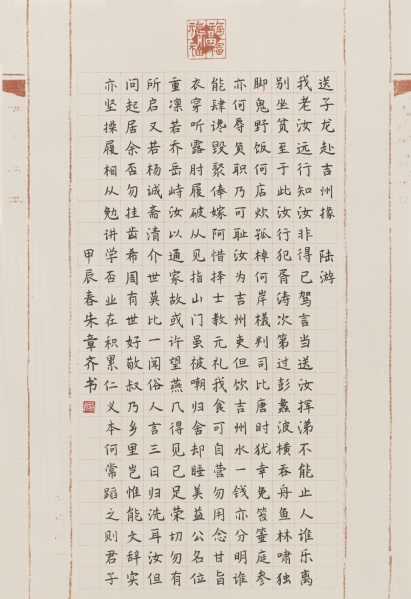 送子龙赴吉州掾 陆游
我老汝远行知汝非得已驾言当送汝挥涕不能止人谁乐离
别坐贫至于此汝行犯胥涛次第过彭蠡波横吞舟鱼林啸独
脚鬼野饭何店炊孤棹何岸檥判司比唐时犹幸免笞箠庭参
亦何辱负职乃可耻汝为吉州吏但饮吉州水一钱亦分明谁
能肆谗毁聚俸嫁阿惜择士教元礼我食可自营勿用念甘旨
衣穿听露肘履破从见指出门虽被嘲归舍却睡美益公名位
重凛若乔岳峙汝以通家故或许望燕几得见已足荣切勿有
所启又若杨诚斋清介世莫比一闻俗人言三日归洗耳汝但
问起居余否勿挂齿希周有世好敬叔乃乡里岂惟能文辞实
亦坚操履相从勉讲学否业在积累仁义本何常蹈之则君子
甲辰春朱章齐书